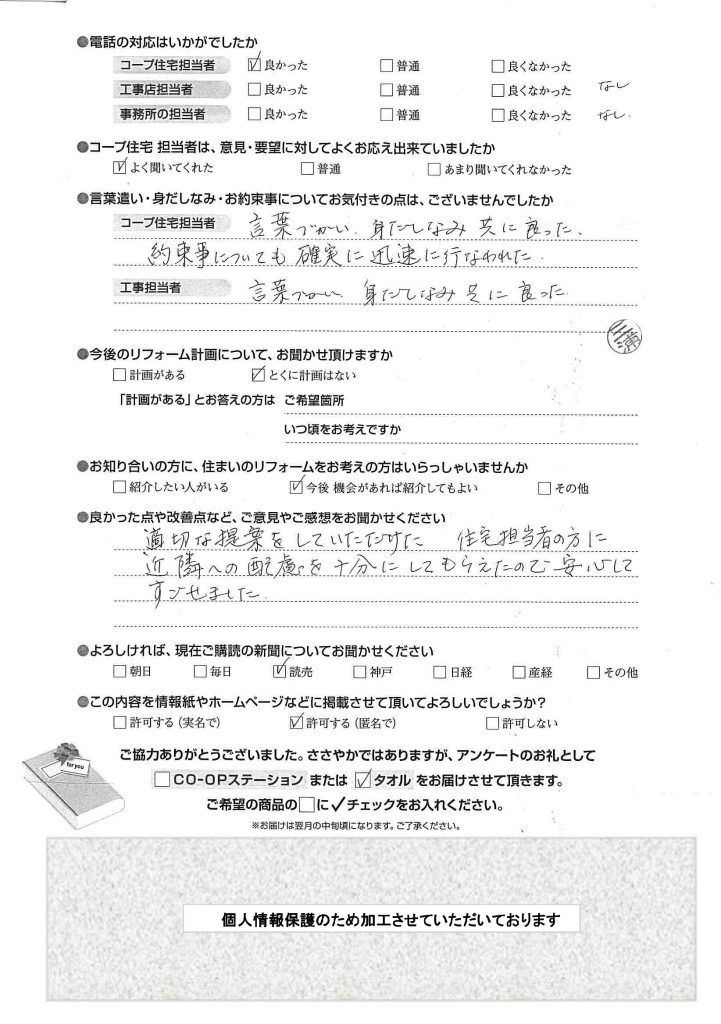 ●電話の対応はいかがでしたか
コープ住宅担当者 ☑良かった □普通 □良くなかった
工事店担当者 □良かった □普通 □良くなかった なし
事務所の担当者 □良かった □普通 □良くなかった なし.
●コープ住宅 担当者は、意見・要望に対してよくお応え出来ていましたか
☑よく聞いてくれた □普通 □あまり聞いてくれなかった
●言葉遣い・身だしなみ・お約束事についてお気付きの点は、ございませんでしたか
コープ住宅担当者 言葉づかい、身だしなみ 共に良った、
約束事についても 確実に 迅速に行なわれた.
工事担当者 言葉づかい 身だしなみ 共に良った.
三浦
●今後のリフォーム計画について、お聞かせ頂けますか
□計画がある ☑とくに計画はない
「計画がある」とお答えの方は ご希望箇所
いつ頃をお考えですか
●お知り合いの方に、住まいのリフォームをお考えの方はいらっしゃいませんか
□紹介したい人がいる ☑今後 機会があれば紹介してもよい □その他
●良かった点や改善点など、ご意見やご感想をお聞かせください
適切な提案をしていただけた 住宅担当者の方に
近隣への配慮を十分にしてもらえたので安心して
すごせました.
●よろしければ、現在ご購読の新聞についてお聞かせください
□朝日 □毎日 ☑読売 □神戸 □日経 □産経 □その他
●この内容を情報紙やホームページなどに掲載させて頂いてよろしいでしょうか?
□許可する(実名で) ☑許可する(匿名で) □許可しない
for you
ご協力ありがとうございました。ささやかではありますが、アンケートのお礼として
□CO-OPステーション または ☑タオル をお届けさせて頂きます。
ご希望の商品の□に✓チェックをお入れください。
※お届けは翌月の中旬頃になります。ご了承ください。
個人情報保護のため加工させていただいております